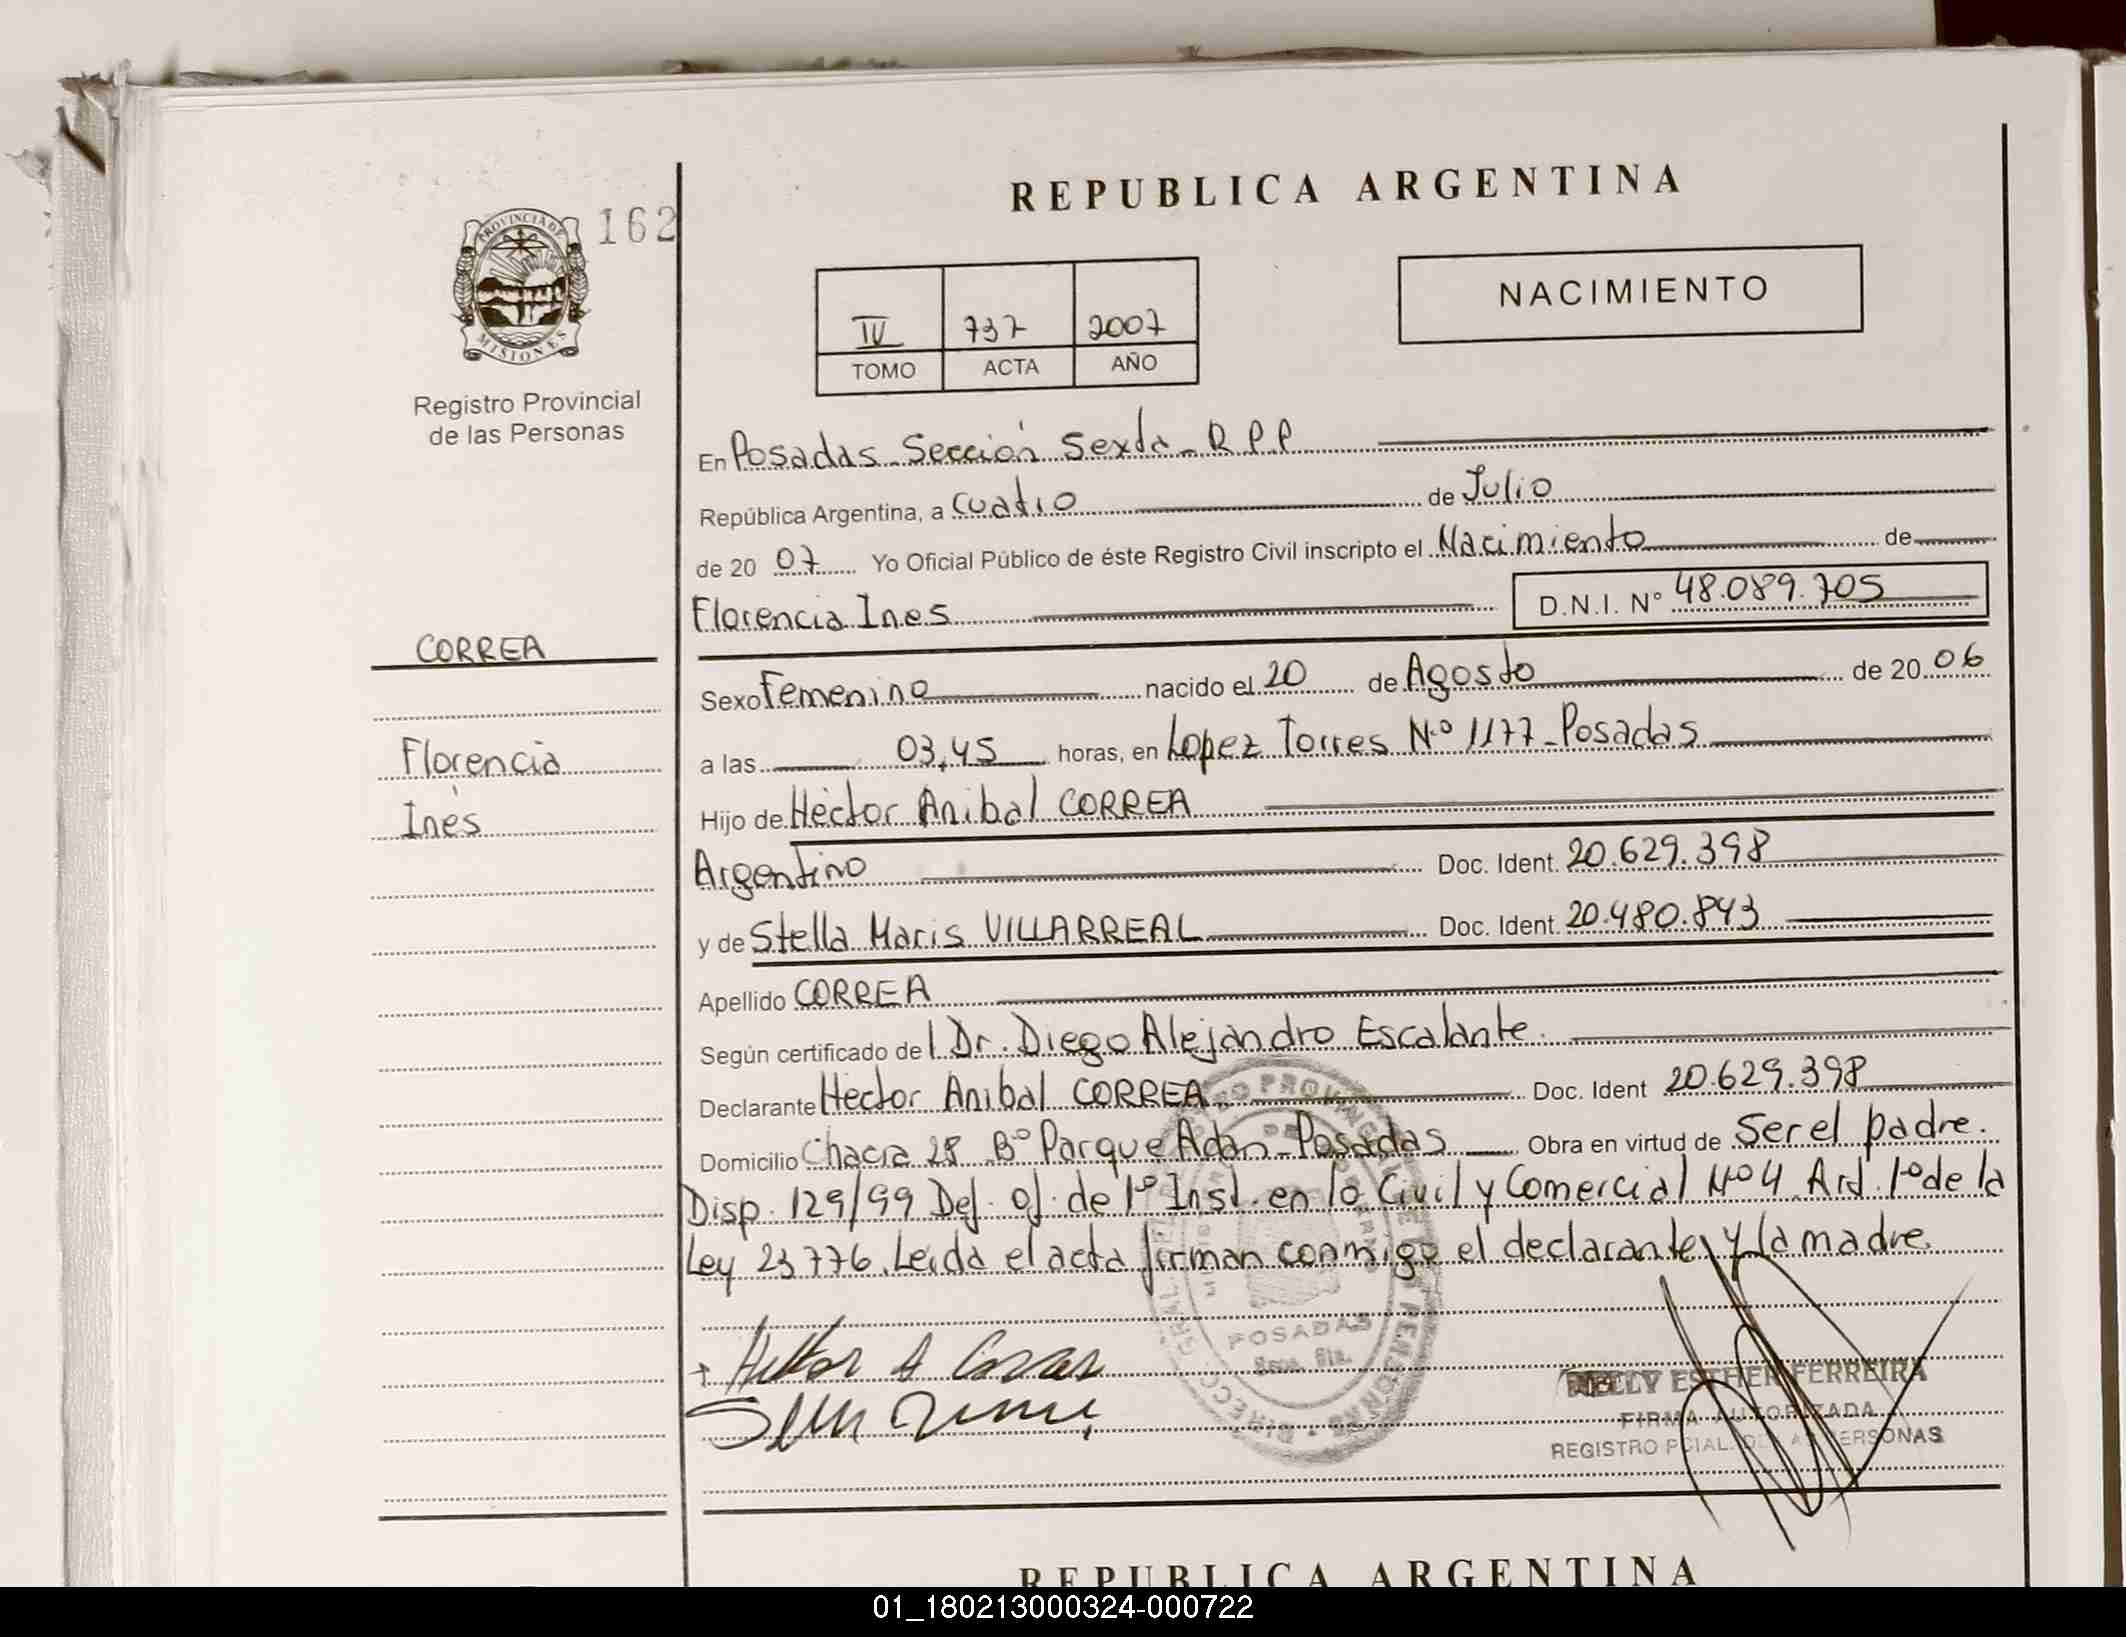 REPUBLICA ARGENTINA
PROVINCIA DE
MISIONES
162
Registro Provincial
de las Personas
IV 737 2007
TOMO ACTA AÑO
NACIMIENTO
En Posadas Sección Sexta - R.P.P
República Argentina, a Cuatro de Julio
de 20 07 Yo Oficial Público de éste Registro Civil inscripto el Nacimiento de
Florencia Ines D.N.I. Nº 48.089.705
CORREA
Florencia
Inés
Sexo Femenino nacido el 20 de Agosto de 20 06
a las 03,45 horas, en Lopez Torres Nº 1177 - Posadas
Hijo de Héctor Anibal CORREA
Argentino Doc. Ident. 20.629.398
y de Stella Maris VILLARREAL Doc. Ident. 20.480.843
Apellido CORREA
Según certificado del Dr. Diego Alejandro Escalante.
Declarante Héctor Anibal CORREA Doc. Ident 20.629.398
Domicilio Chacra 28 Bº Parque Adan - Posadas Obra en virtud de Ser el padre.
Disp. 129/99 Def. of. de 1º Inst. en lo Civil y Comercial Nº 4 Art. 1º de la
Ley 23776. Leida el acta firman conmigo el declarante y la madre.
POSADAS
NELLY ESTHER FERREIRA
FIRMA AUTORIZADA
REGISTRO PCIAL. DE LAS PERSONAS
REPUBLICA ARGENTINA
01_180213000324-000722